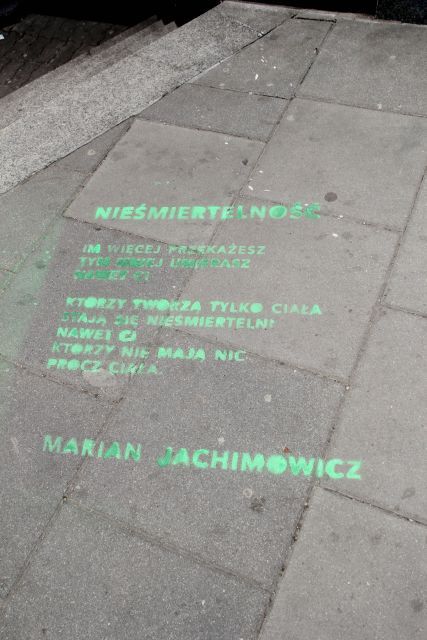 NIEŚMIERTELNOŚĆ
IM WIĘCEJ PRZEKAŻESZ
TYM MNIEJ UMIERASZ
NAWET CI
KTÓRZY TWORZĄ TYLKO CIAŁA
STAJĄ SIĘ NIEŚMIERTELNI
NAWET CI
KTÓRZY NIE MAJĄ NIC
PRÓCZ CIAŁA.
MARIAN JACHIMOWICZ